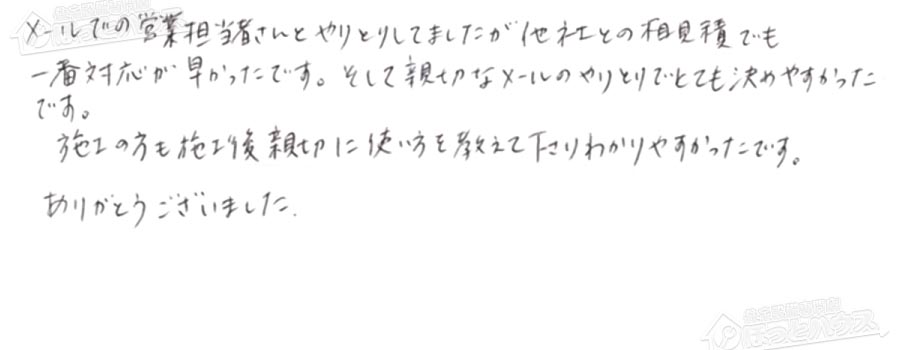 メールでの営業担当者さんとやりとりしてましたが他社との相見積でも
一番対応が早かったです。そして親切なメールのやりとりでとても決めやすかった
です。
施工の方も施工後親切に使い方を教えて下さりわかりやすかったです。
ありがとうございました.
ほっとハウス